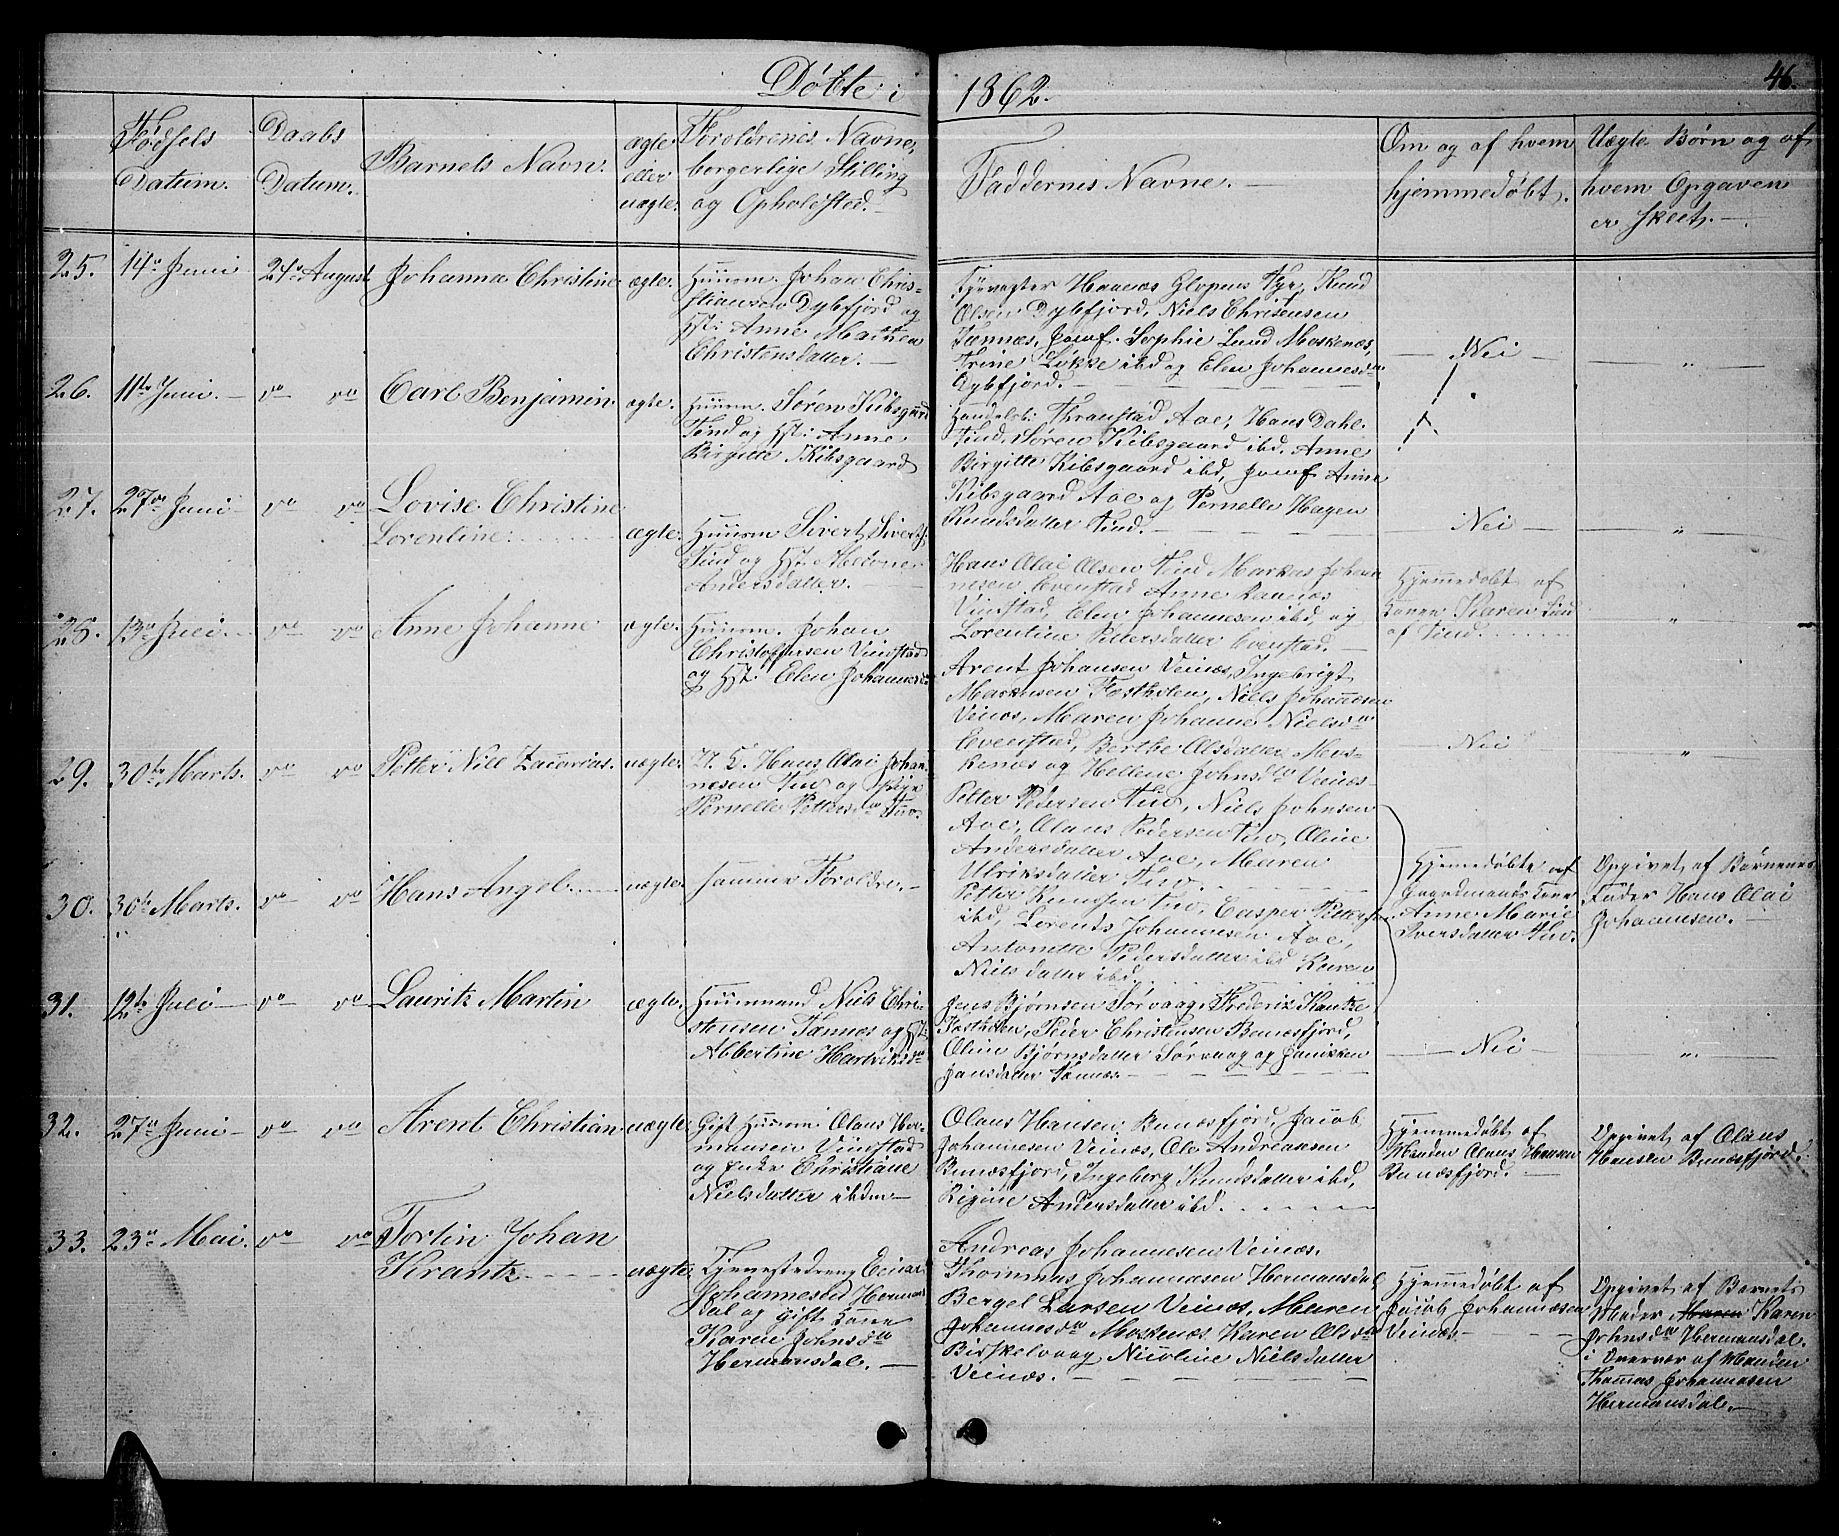 Døbte i 1862.
46.
Fødsels Datum.
Daabs Datum.
Barnets Navn.
ægte eller uægte.
Forældrenes Navne, borgerlige Stilling og Opholdsted.
Faddernes Navne.
Om og af hvem hjemmedøbt.
Uægte Børn og af hvem Opgaven er skeet.
25. 14de Juni 24de August Johanna Christine ægte.
Huusm. Johan Chris-
tiansen Dybfjord og
Hst: Anne Mathea
Christensdatter.
Olsen Dybfjord, Niels Christensen
Tennæs, Jomf. Sophie Lund Moskenæs,
Trine Løkke ibd og Elen Johannesdr
Dybfjord.
Nei
"
26. 11te Juni. do do Carl Benjamin ægte.
Huusm. Søren Kibsgaard
Tind og Hst: Anne
Birgitte Kibsgaard
Handelsb: Thranstad Aae, Hans Dahl
Tind, Søren Kibsgaard ibd, Anne
Birgitte Kibsgaard ibd, Jomf Anne
Kibsgaard Aae og Pernelle Hagen
Knudsdatter Tind.
27. 27de Juni do do Lovise Christine
Lorentine ægte.
Huusm Sivert Siverts.
Tind og Hst
Andersdatter.
Nei
"
Hans Olai Olsen Tind Markus Johan
nesen Evenstad Anne
Vinstad, Elen Johannesen ibd, og
Lorentine Pettersdatter Evenstad.
Hjemmedøbt af
Konen Karen Lind
af Tind.
"
28. 13de Juli do do Anne Johanne ægte.
Huusm. Johan
Christoffersen Vinstad
og Hst. Elen Johannesdr
Arent Johansen Veinæs, Ingebrigt
Markusen Festhelen, Niels Johannesen
Veinæs, Maren Johanne Nielsdr
Evenstad, Berthe Olsdatter Mos-
kenæs og Hellene Johnsdr Veinæs
Nei
"
29. 30te Marts. do do Petter Nill Zacarias. uægte.
U. K. Hans Olai Johan-
nesen Tind og Pige
Pernelle Pettersdr Tind.
Petter Pedersen Tind, Niels Johnsen
Aae, Olaus Pedersen Tind, Oline
Andersdatter Aae, Maren
Ulriksdatter Tind.
30. 30te Marts. do do Hans Angel uægte.
samme Forældre.
Petter Knudsen Tind, Casper Petters.
ibd, Lorents Johannesen Aae,
Antonette Pedersdatter ibd Karen
Nielsdatter ibd
Hjemmedøbte af
Gaardmands Kone
Anne Marie
Iversdatter Tind.
Opgivet af Børnenes
Fader Hans Olai
Johannesen.
31. 12te Juli do do Lauritz Martin ægte.
Huusmand Niels Chri-
stensen Tennæs og Hst.
Albertine Hartviksdr
Jens Bjørnsen Sørvaag, Frederik Krantz
Festhelen, Peder Christensen Bunæsfjord,
Oline Bjørnsdatter Sørvaag og Janiken
Jansdatter Tennæs
Nei
"
32. 27de Juni do do Arent Christian uægte.
Gift Huusm: Olaus Her-
mansen Vinstad
og Enke Christiane
Nielsdatter ibdm
Olaus Hansen Bunæsfjord, Jacob
Johannesen Veinæs, Ole Andreassen
Bunæsfjord, Ingeborg Knudsdatter ibd,
Regine Andersdatter ibd.
Hjemmedøbt af
Manden Olaus Hansen
Bunæsfjord.
Opgivet af Olaus
Hansen Bunæsfjord.
33. 23de Mai. do do Torlin Johan
Krantz uægte
Tjenestedreng Edvard
Johannesen Herman
dal og gift Kone
Karen Johnsdr
Hermansdal.
Andreas Johannesen Veinæs.
Thommas Johannesen Hermansdal,
Bergel Larsen Veinæs, Maren
Johannesdr Moskenæs Karen Olsdr
Nicoline Nielsdatter
Veinæs.
Hjemmedøbt af
Jacob Johannesen
Veinæs
Opgivet af Barnets
Moder Maren Karen
Johnsdr Hermansdal.
i Overvær af Manden
Thomas Johannesen
Hermansdal.